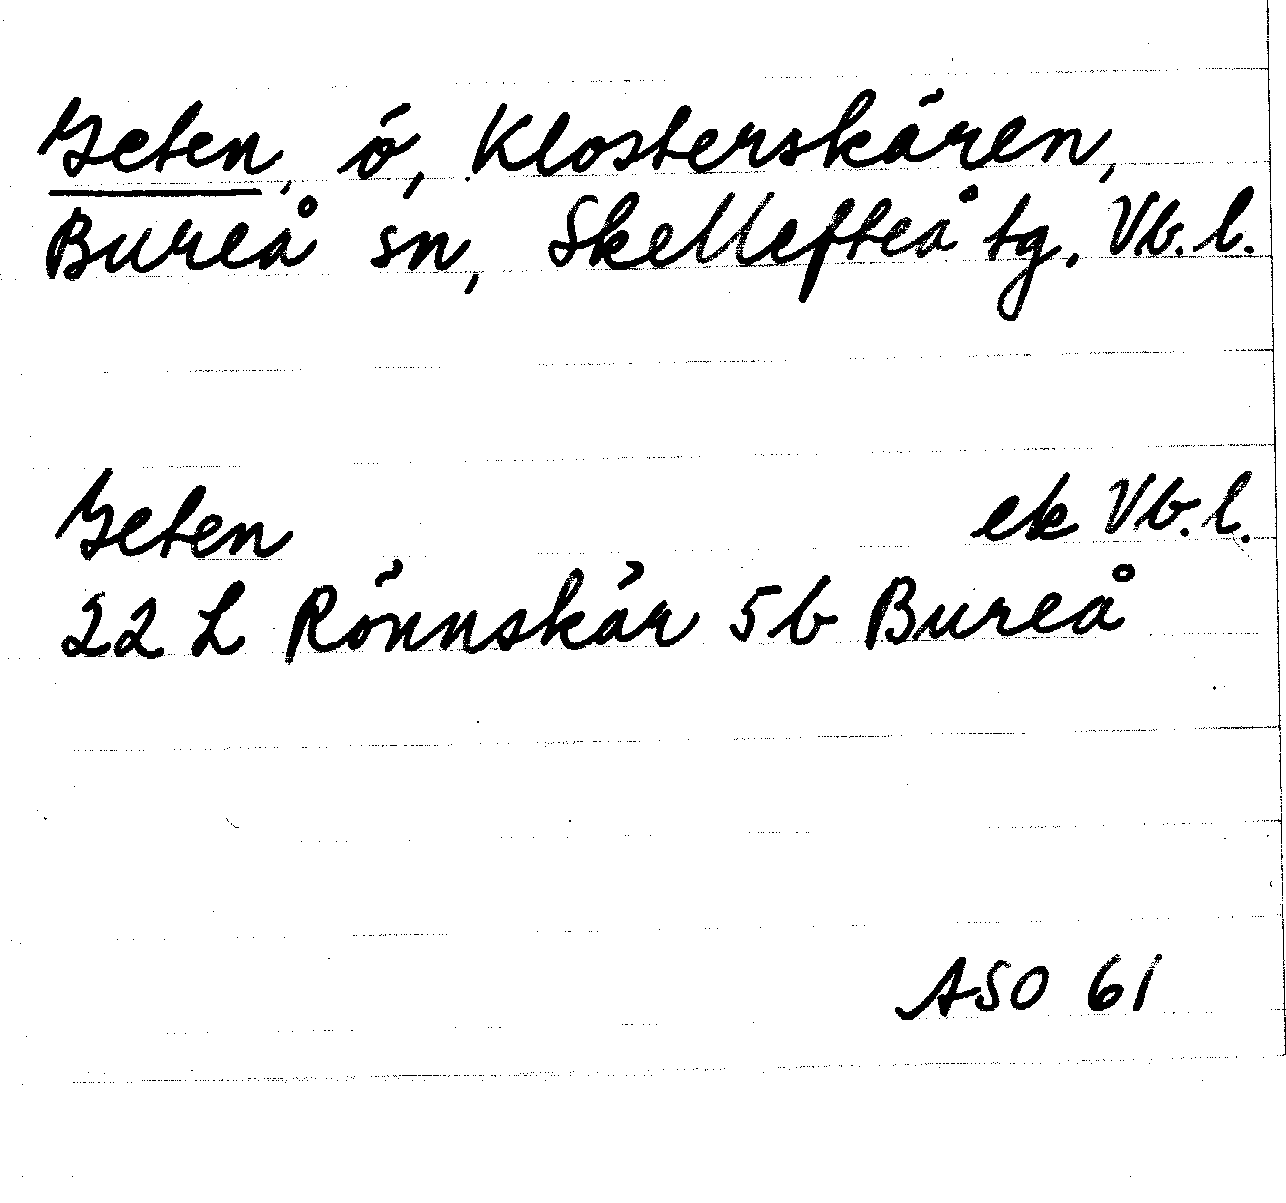 Geten, ö, Klosterskären,
Bureå sn, Skellefteå tg, Vb. l.
Geten ek Vb. l.
22 L Rönnskär 5b Bureå
ASO 61